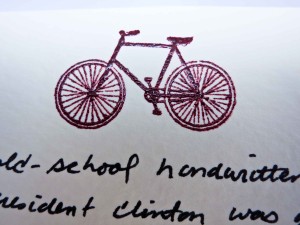 old-school handwritten
president clinton was